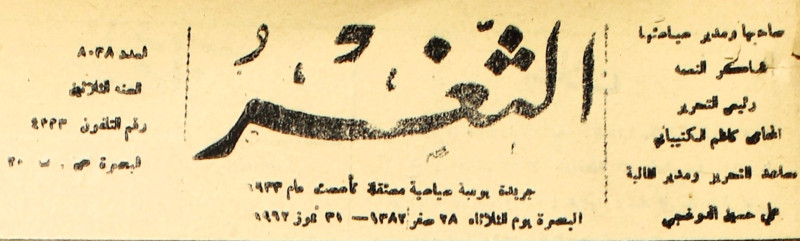 صاحبها ومدير سياستها
شاكر النعمه
رئيس التحرير
المحامي كاظم المكتيباني
مساعد التحرير ومدير المالية
علي حسين
الثغر
جريدة يومية سياسية مستقلة تأسست عام ١٩٣٣
البصرة يوم الثلاثاء ٢٨ صفر ١٣٨٢ — ٣١ تموز ١٩٦٢
العدد ٨٠٣٨
السنه الثلاثين
رقم التلفون ٤٣٣٣
البصرة ص . ب ٢٠